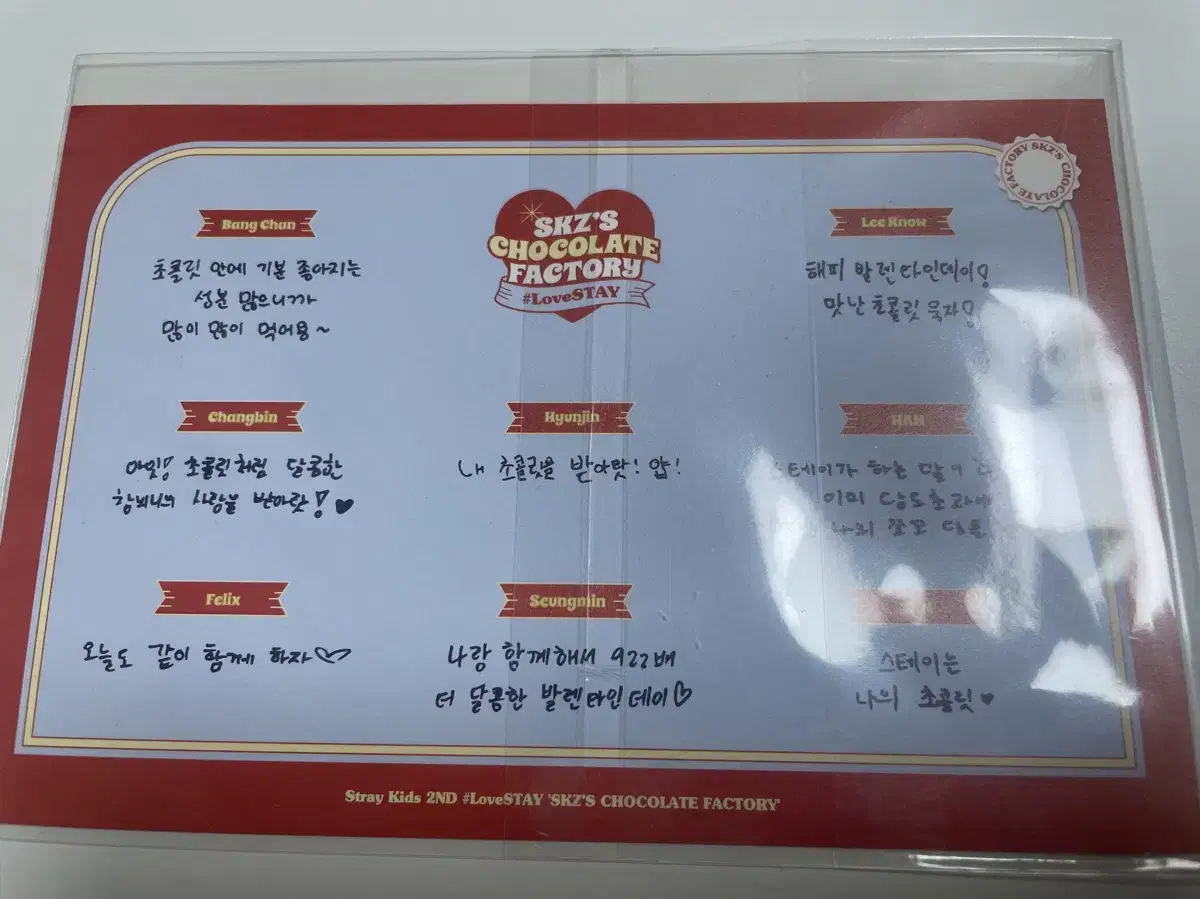 FACTORY SKZ'S CHOCOLATE
SKZ'S
CHOCOLATE
FACTORY
#LoveSTAY
Bang Chan
초콜릿 안에 기분 좋아지는
성분 많으니까
많이 많이 먹어용~
Lee Know
해피 발렌타인데이!
맛난 초콜릿 묵자!
Changbin
아잇! 초콜릿처럼 달콤한
창비니의 사랑을 받아랏! ♥
Hyunjin
내 초콜릿을 받아랏! 얍!
HAN
스테이가 하는 말
이미 당도초과
Felix
오늘도 같이 함께 하자♡
Seungmin
나랑 함께해서 922배
더 달콤한 발렌타인데이♡
스테이는
나의 초콜릿♥
Stray Kids 2ND #LoveSTAY 'SKZ'S CHOCOLATE FACTORY'